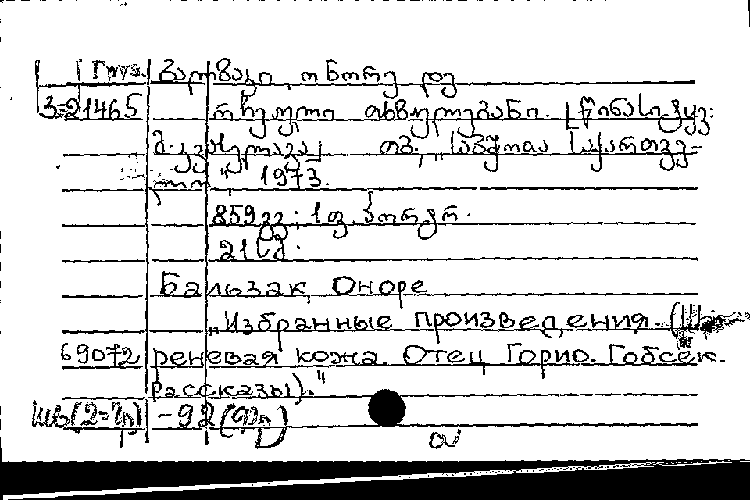 Груз. ბალზაკი, ონორე დე
3-21465 რჩეული თხზულებანი. [წინასიტყვ.
მ. კვესელავა] თბ., „საბჭოთა საქართვე-
ლო“, 1973.
859 გვ; 1 ფ. პორტრ.
21 სმ.
Бальзак, Оноре
„Избранные произведения. (Шаг-
69072 реневая кожа. Отец Горио. Гобсек.
Рассказы)."
-92 (Фр)